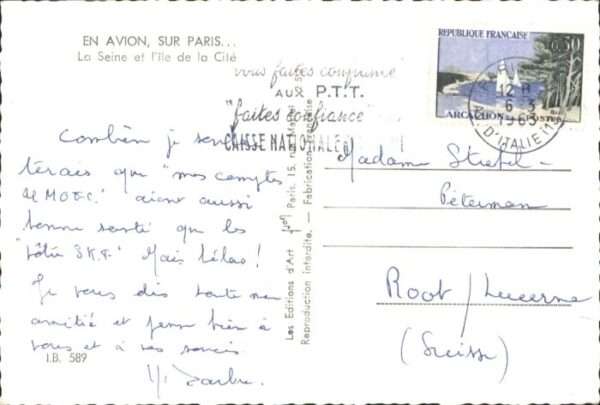 EN AVION, SUR PARIS...
La Seine et l'Ile de la Cité
vous faites confiance
AUX P.T.T.
"faites confiance"
CAISSE NATIONALE
RÉPUBLIQUE FRANÇAISE
0,30
ARCACHON
POSTES
12 H
6 - 3
196
D'ITALIE
Combien je
terais que "mes comptes
aient aussi
bonne santé que les
"vôtre Mais hélas!
Je vous dis toute ma
amitié et pense bien à
vous et à vos soucis
I.B. 589
Les Editions d'Art
Paris, 15, rue Martel
Reproduction interdite. — Fabrication Française
Madame
Peterman
Root/Lucerne
(Suisse)